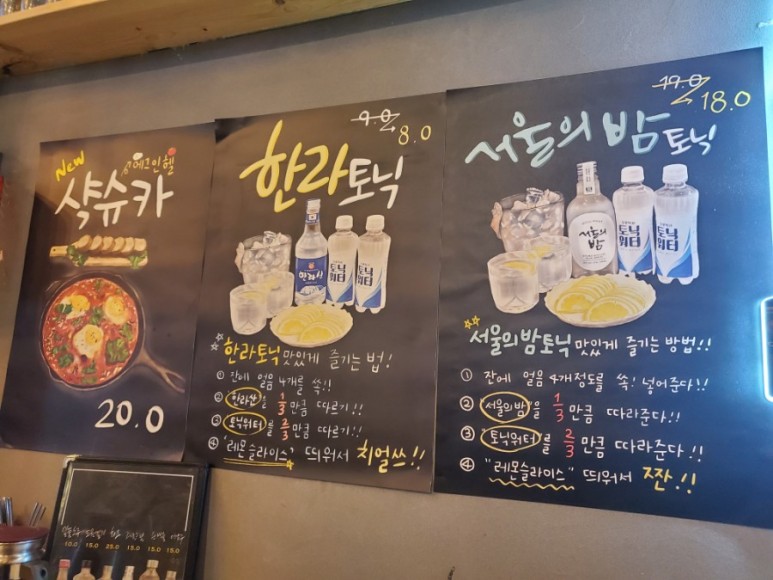 New
에그인헬
샥슈카
20.0
9.0
8.0
한라토닉
한라산
토닉
워터
토닉
워터
한라토닉 맛있게 즐기는 법!
① 잔에 얼음 4개를 쏙!!
② 한라산을 1/3 만큼 따르기!!
③ 토닉워터를 2/3 만큼 따르기!!
④ '레몬슬라이스' 띄워서 치얼쓰!!
19.0
18.0
서울의밤 토닉
서울의
밤
토닉
워터
토닉
워터
서울의밤토닉 맛있게 즐기는 방법!!
① 잔에 얼음 4개정도를 쏙! 넣어준다!!
② "서울의밤"을 1/3 만큼 따라준다!!
③ "토닉워터"를 2/3 만큼 따라준다!!
④ "레몬슬라이스" 띄워서 짠!!
10.0 15.0 25.0 15.0 15.0 15.0